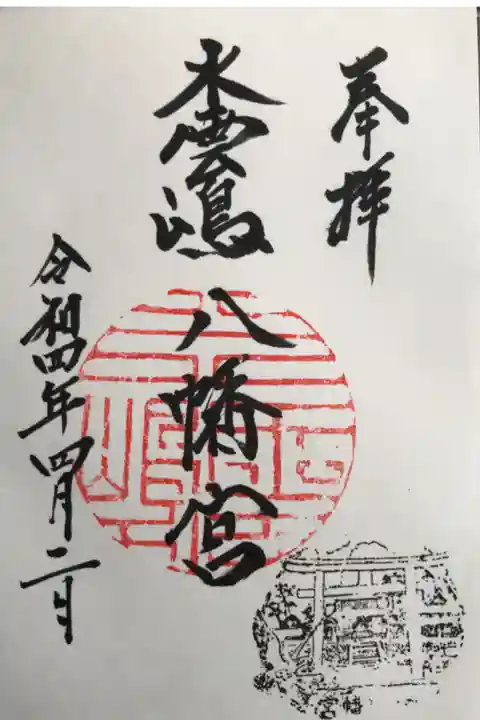 奉拝
水雲嶋八幡宮
令和四年四月二日